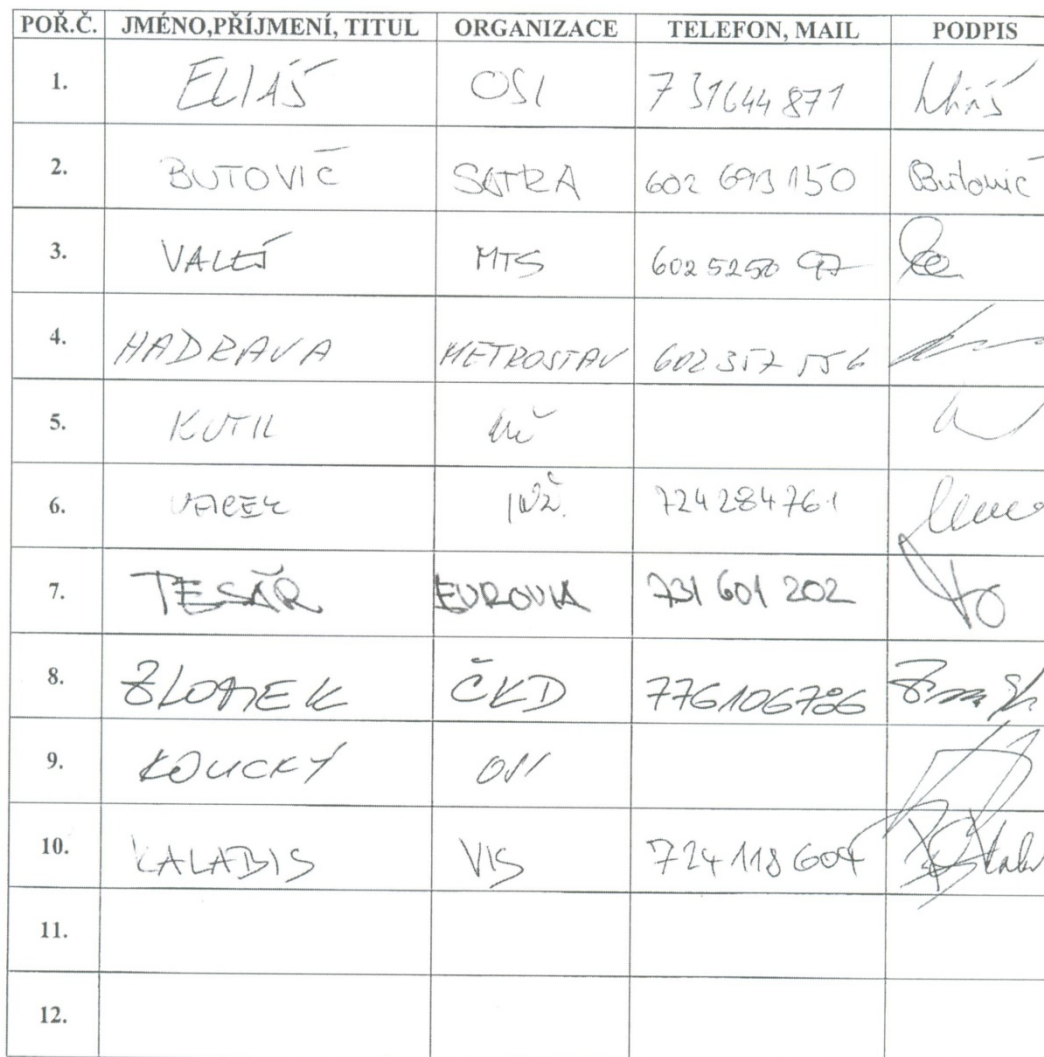 POŘ.Č. JMÉNO,PŘÍJMENÍ, TITUL ORGANIZACE TELEFON, MAIL PODPIS
1. ELIÁŠ OSI 731644871 Eliáš
2. BUTOVIČ SATRA 602 693 150 Butovič
3. VALEŠ MTS 602 5250 97
4. HADRAVA METROSTAV 602 357 556
5. KUTIL
6. VACEK INŽ. 724284761
7. TESAŘ EUROVIA 731 601 202
8. ZLOMEK ČKD 776106786
9. KOUCKÝ OSI
10. KALABIS VIS 724 118 604
11.
12.